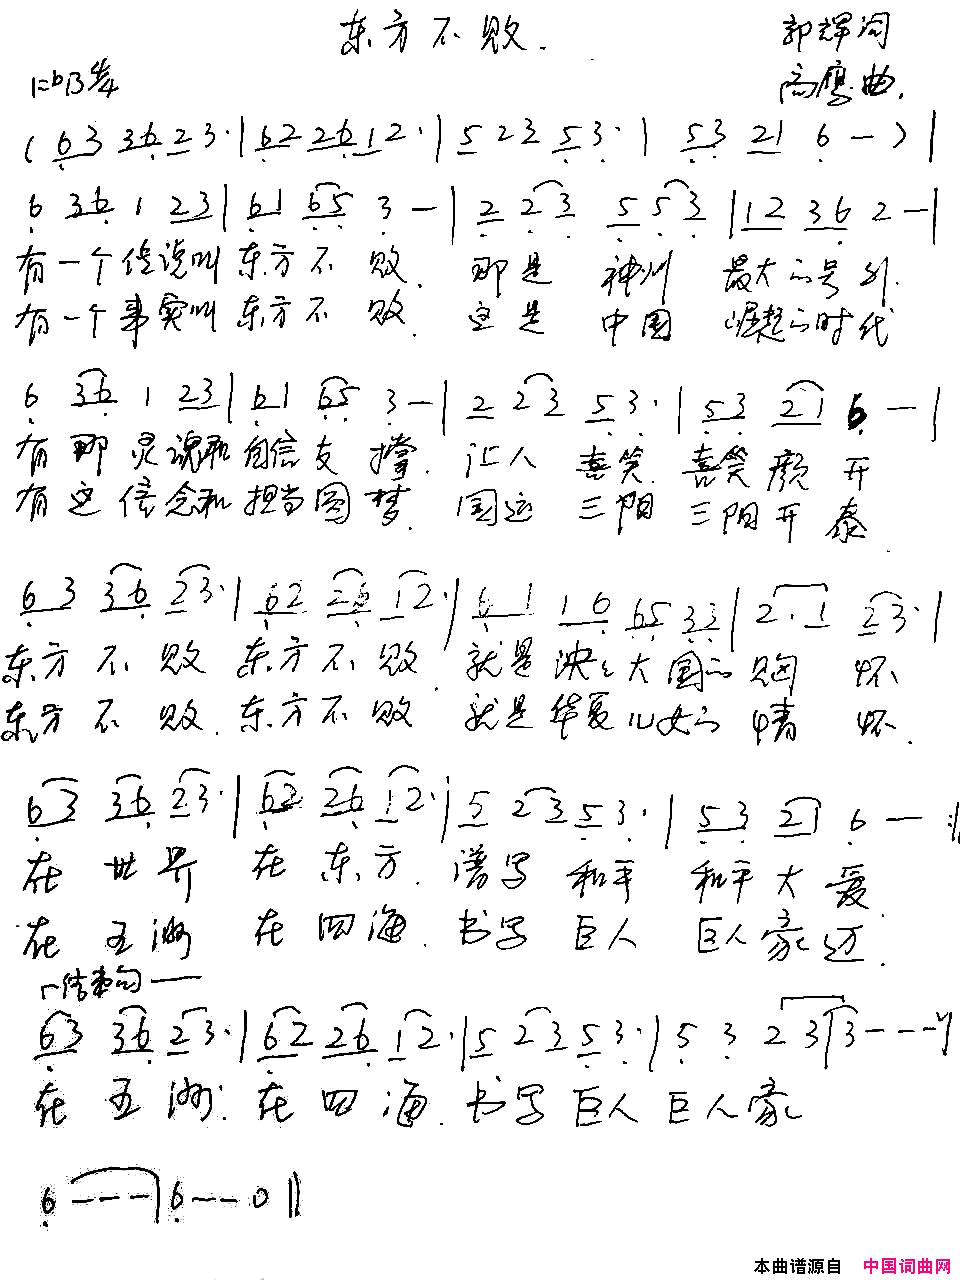 东方不败.
郭辉词
1=bB 4/4
高鹰曲.
( 6 3 36 23· | 62 26 12· | 5 23 53· | 53 21 6 — ) |
6 36 1 23 | 61 65 3 — | 2 23 5 53 | 12 36 2 — |
有一个传说叫东方不败. 那是 神州 最大的号外.
有一个事实叫东方不败. 这是 中国 崛起的时代
6 36 1 23 | 61 65 3 — | 2 23 53· | 53 21 6 — |
有那灵魂和自信支撑. 让人 喜笑. 喜笑颜开
有这信念和担当圆梦. 国运 三阳 三阳开泰.
63 36 23· | 62 26 12· | 61 16 65 33 | 2·1 23· |
东方不败 东方不败. 就是泱泱大国的胸怀
东方不败. 东方不败 就是华夏儿女的情怀.
63 36 23· | 62 26 12· | 5 23 53· | 53 21 6 — :||
在世界 在东方. 谱写 和平 和平大爱
在五洲 在四海. 书写 巨人 巨人豪迈.
结束句 —
63 36 23· | 62 26 12· | 5 23 53· | 5 3 2 3 | 3 - - - |
在五洲. 在四海. 书写巨人 巨人豪
6 - - - | 6 - - 0 ||
本曲谱源自 中国词曲网